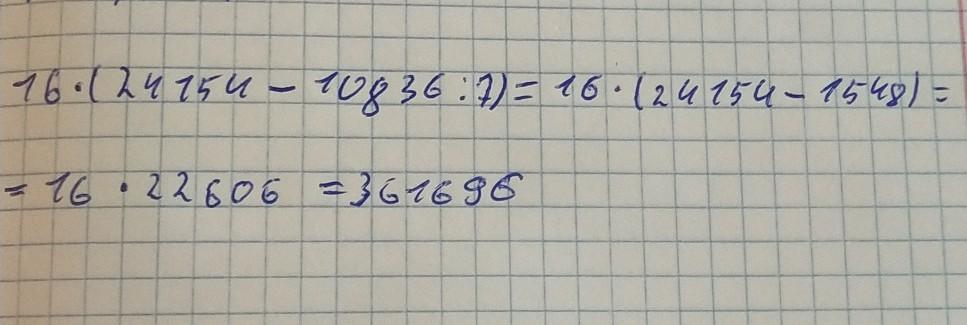 16·(24154-10836:7)=16·(24154-1548)=
=16·22606=361696